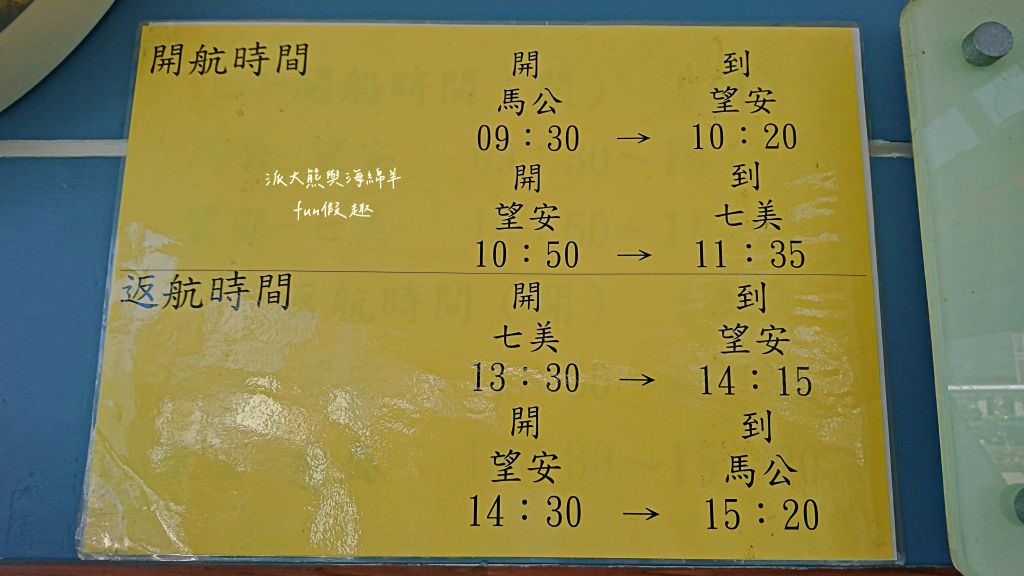 開航時間
開 到
馬公 望安
09：30 → 10：20
開 到
望安 七美
10：50 → 11：35
派大熊與海綿羊
fun假趣
返航時間
開 到
七美 望安
13：30 → 14：15
開 到
望安 馬公
14：30 → 15：20